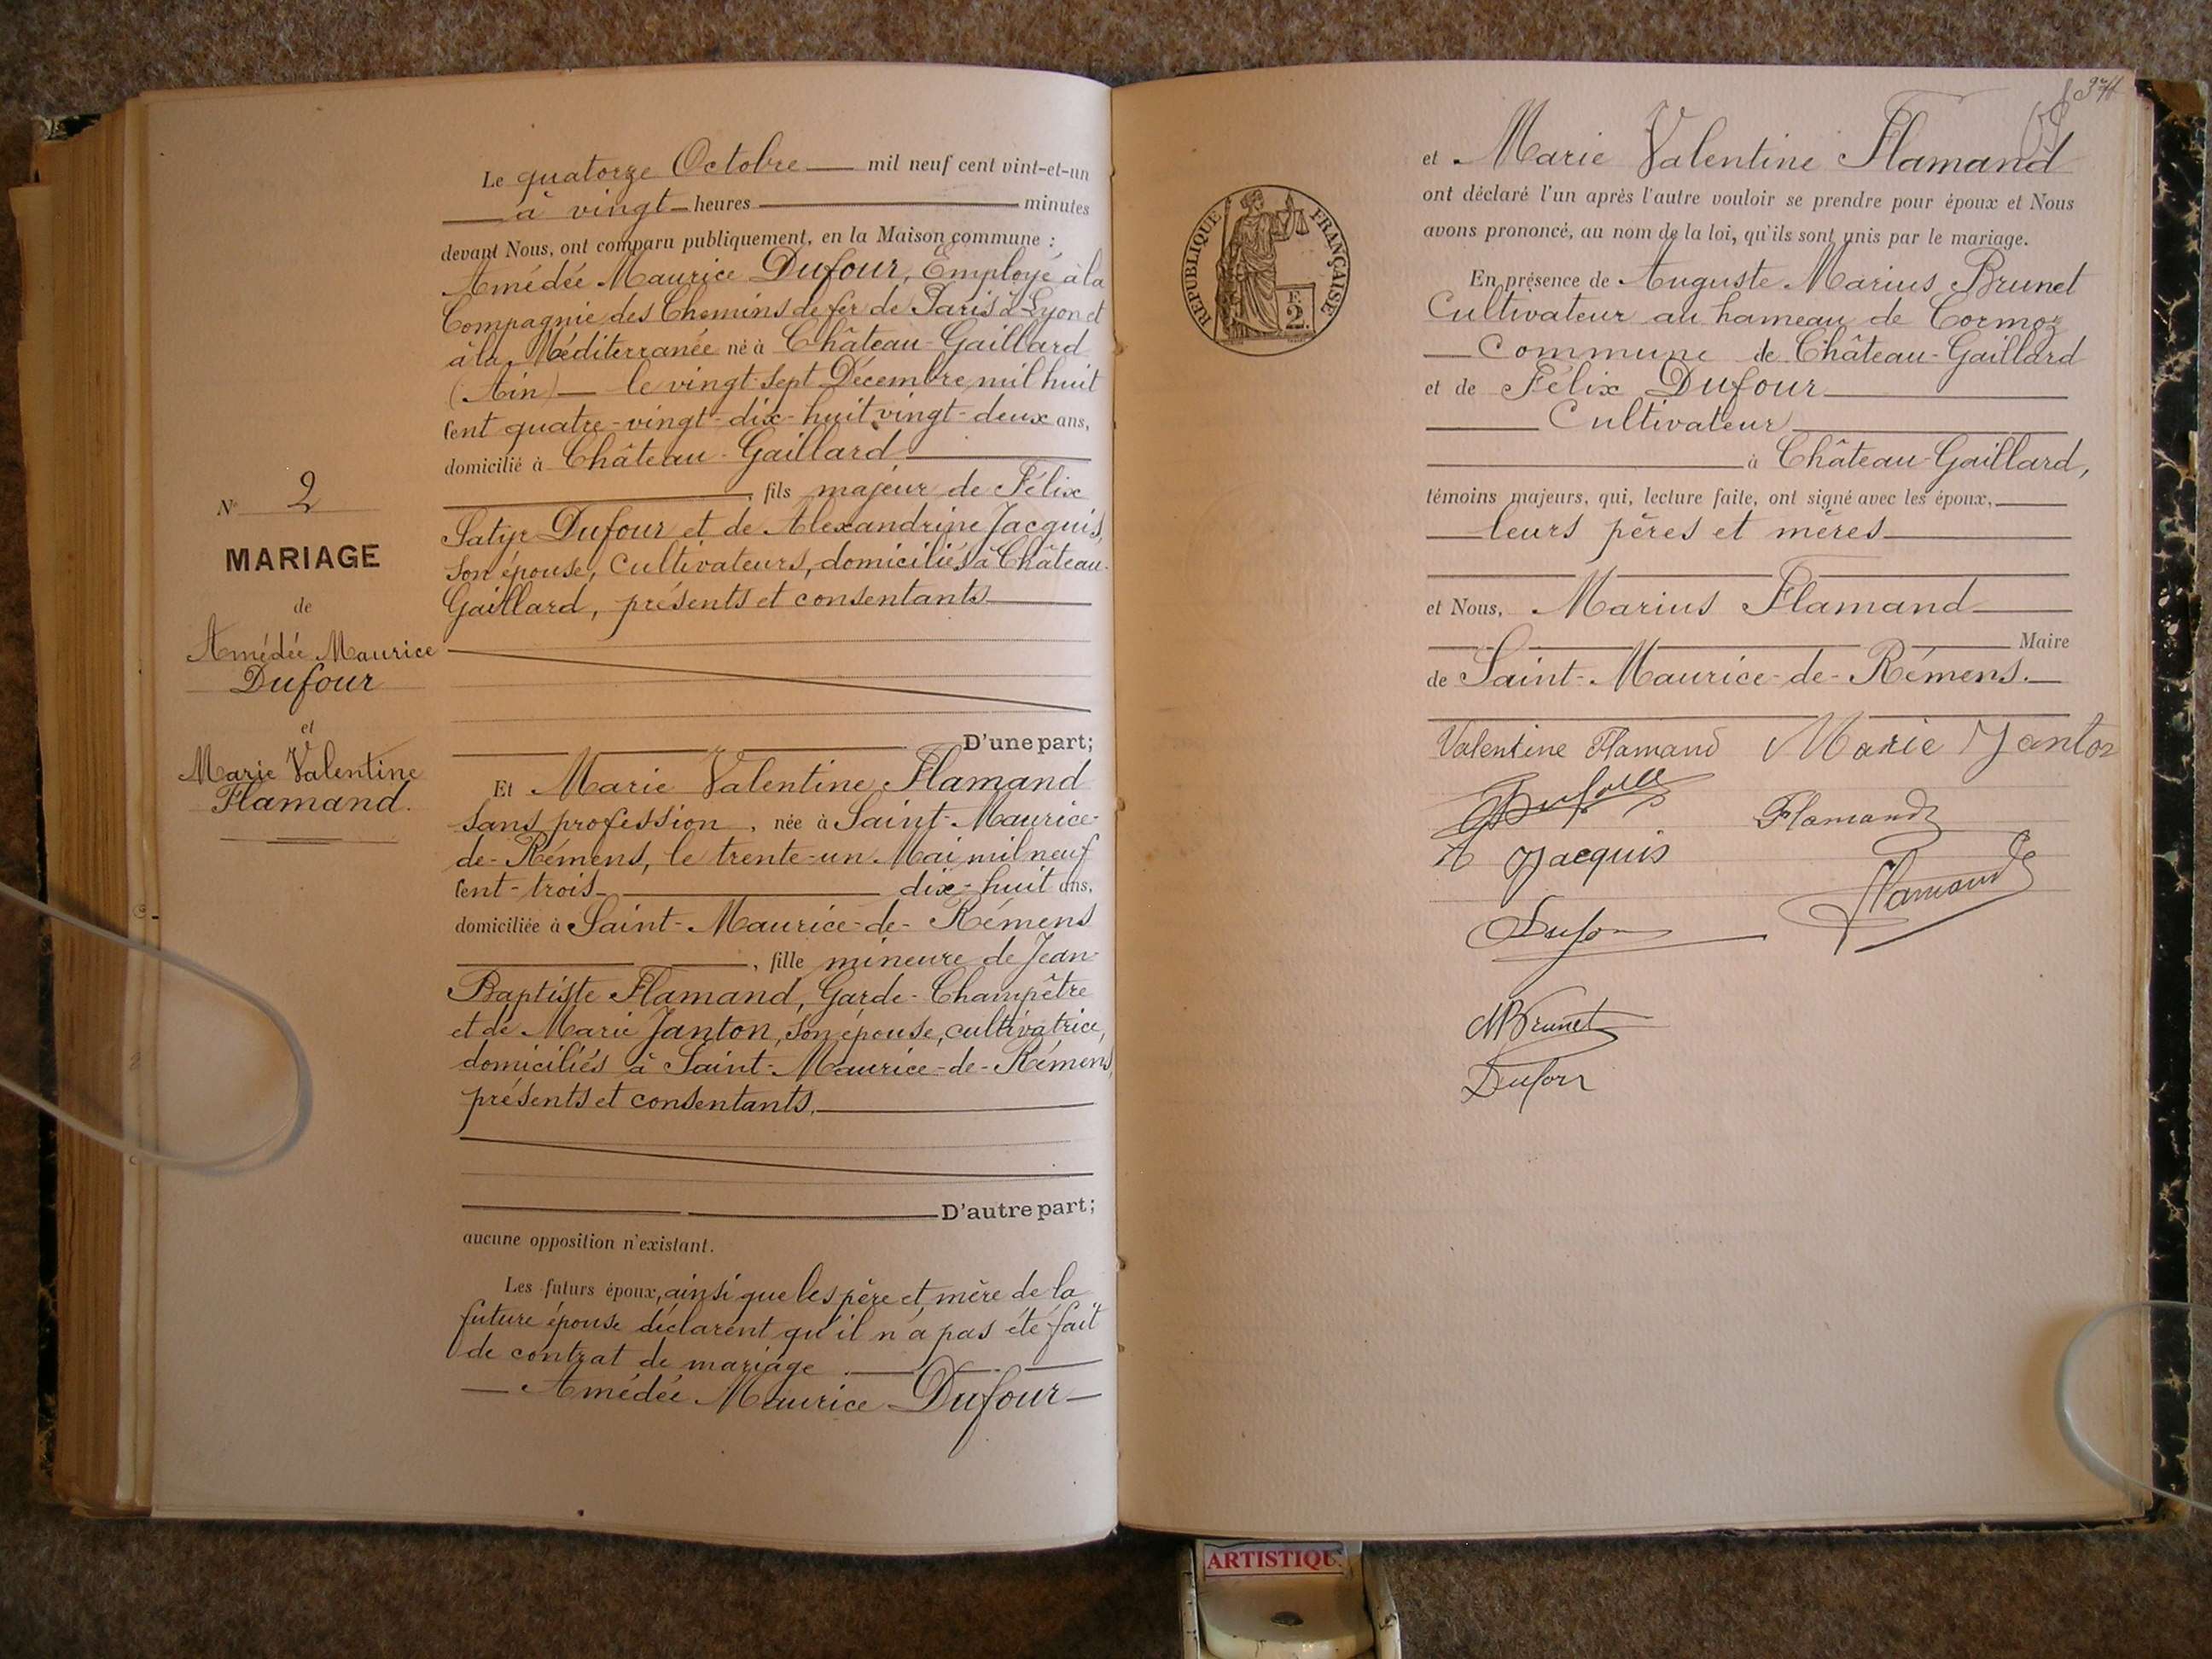 Le quatorze Octobre mil neuf cent vint-et-un
à vingt heures minutes
devant Nous, ont comparu publiquement, en la Maison commune :
Amédée Maurice Dufour, Employé à la
Compagnie des Chemins de fer de Paris à Lyon et
à la Méditerranée né à Château-Gaillard
(Ain) le vingt-sept Décembre mil huit
cent quatre-vingt-dix-huit vingt-deux ans,
domicilié à Château-Gaillard
, fils majeur de Félix
Satyr Dufour et de Alexandrine Jacquis,
son épouse, cultivateurs, domiciliés à Château-
Gaillard, présents et consentants
D'une part;
Et Marie Valentine Flamand
sans profession, née à Saint-Maurice-
de-Rémens, le trente-un Mai mil neuf
cent-trois dix-huit ans,
domiciliée à Saint-Maurice-de-Rémens
, fille mineure de Jean-
Baptiste Flamand, Garde-Champêtre
et de Marie Janton, son épouse, cultivatrice,
domiciliés à Saint-Maurice-de-Rémens,
présents et consentants.
D'autre part;
aucune opposition n'existant.
Les futurs époux, ainsi que les père et mère de la
future épouse déclarent qu'il n'a pas été fait
de contrat de mariage.
Amédée Maurice Dufour
N° 2
MARIAGE
de
Amédée Maurice
Dufour
et
Marie Valentine
Flamand.
RÉPUBLIQUE FRANÇAISE
2
et Marie Valentine Flamand
ont déclaré l'un après l'autre vouloir se prendre pour époux et Nous
avons prononcé, au nom de la loi, qu'ils sont unis par le mariage.
En présence de Auguste Marius Brunet
Cultivateur au hameau de Cormoz
Commune de Château-Gaillard
et de Félix Dufour
Cultivateur
à Château-Gaillard,
témoins majeurs, qui, lecture faite, ont signé avec les époux,
leurs pères et mères
et Nous, Marius Flamand
Maire
de Saint-Maurice-de-Rémens.
Valentine Flamand Marie Janton
Dufour Flamand
A Jacquis
Flamand
Dufour
MBrunet
Dufour
ARTISTIQU